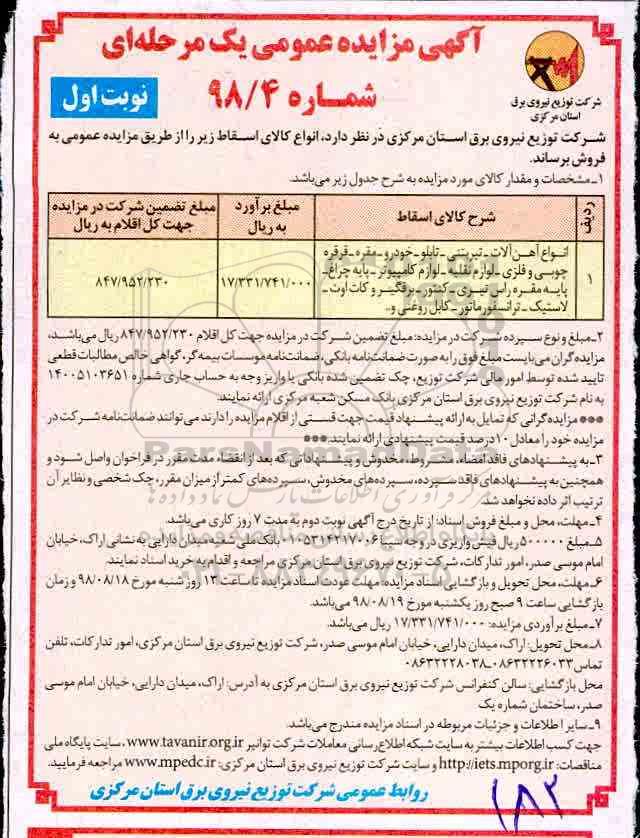 آگهی مزایده عمومی یک مرحله‌ای
شماره ۹۸/۴
نوبت اول
شرکت توزیع نیروی برق
استان مرکزی
شرکت توزیع نیروی برق استان مرکزی در نظر دارد، انواع کالای اسقاط زیر را از طریق مزایده عمومی به
فروش برساند.
۱ـ مشخصات و مقدار کالای مورد مزایده به شرح جدول زیر می‌باشد.
ردیف
شرح کالای اسقاط
مبلغ برآورد
به ریال
مبلغ تضمین شرکت در مزایده
جهت کل اقلام به ریال
۱
انواع آهن‌آلات ـ تیربتنی ـ تابلو ـ خودرو ـ مقره ـ قرقره
چوبی و فلزی ـ لوازم نقلیه ـ لوازم کامپیوتر ـ پایه چراغ ـ
پایه مقره راس تیری ـ کنتور ـ برقگیر و کات اوت ـ
لاستیک ـ ترانسفورماتور ـ کابل روغنی و..
۱۷/۳۳۱/۷۴۱/۰۰۰
۸۴۷/۹۵۲/۲۳۰
۲ـ مبلغ و نوع سپرده شرکت در مزایده: مبلغ تضمین شرکت در مزایده جهت کل اقلام ۸۴۷/۹۵۲/۲۳۰ ریال می‌باشد،
مزایده‌گران می‌بایست مبلغ فوق را به صورت ضمانت‌نامه بانکی، ضمانت‌نامه موسسات بیمه‌گر، گواهی خالص مطالبات قطعی
تایید شده توسط امور مالی شرکت توزیع، چک تضمین شده بانکی یا واریز وجه به حساب جاری شماره ۱۴۰۰۵۱۰۳۶۵۱
به نام شرکت توزیع نیروی برق استان مرکزی بانک مسکن شعبه مرکزی ارائه نمایند.
*** مزایده‌گرانی که تمایل به ارائه پیشنهاد قیمت جهت قسمتی از اقلام مزایده را دارند می‌توانند ضمانت‌نامه شرکت در
مزایده خود را معادل ۱۰ درصد قیمت پیشنهادی ارائه نمایند.***
۳ـ به پیشنهادهای فاقد امضاء، مشروط، مخدوش و پیشنهاداتی که بعد از انقضاء مدت مقرر در فراخوان واصل شود و
همچنین به پیشنهادهای فاقد سپرده، سپرده‌های مخدوش، سپرده‌های کمتر از میزان مقرر، چک شخصی و نظایر آن
ترتیب اثر داده نخواهد شد.
۴ـ مهلت، محل و مبلغ فروش اسناد: از تاریخ درج آگهی نوبت دوم به مدت ۷ روز کاری می‌باشد.
۵ـ مبلغ ۵۰۰۰۰۰ ریال فیش واریزی در وجه سیبا ۰۱۰۵۳۱۴۲۱۷۰۰۶ بانک ملی شعبه میدان دارایی به نشانی اراک، خیابان
امام موسی صدر، امور تدارکات، شرکت توزیع نیروی برق استان مرکزی مراجعه و اقدام به خرید اسناد نمایند.
۶ـ مهلت، محل تحویل و بازگشایی اسناد مزایده: مهلت عودت اسناد مزایده تا ساعت ۱۳ روز شنبه مورخ ۹۸/۰۸/۱۸ و زمان
بازگشایی ساعت ۹ صبح روز یکشنبه مورخ ۹۸/۰۸/۱۹ می‌باشد.
۷ـ مبلغ برآوردی مزایده: ۱۷/۳۳۱/۷۴۱/۰۰۰ ریال می‌باشد.
۸ـ محل تحویل: اراک، میدان دارایی، خیابان امام موسی صدر، شرکت توزیع نیروی برق استان مرکزی، امور تدارکات، تلفن
تماس ۰۸۶۳۲۲۲۶۰۳۳ـ۰۸۶۳۲۲۲۸۰۳۸
محل بازگشایی: سالن کنفرانس شرکت توزیع نیروی برق استان مرکزی به آدرس: اراک، میدان دارایی، خیابان امام موسی
صدر، ساختمان شماره یک
۹ـ سایر اطلاعات و جزئیات مربوطه در اسناد مزایده مندرج می‌باشد.
جهت کسب اطلاعات بیشتر به سایت شبکه اطلاع‌رسانی معاملات شرکت توانیر www.tavanir.org.ir، سایت پایگاه ملی
مناقصات: http://iets.mporg.ir و سایت شرکت توزیع نیروی برق استان مرکزی: www.mpedc.ir مراجعه فرمایید.
روابط عمومی شرکت توزیع نیروی برق استان مرکزی
۱۸۳